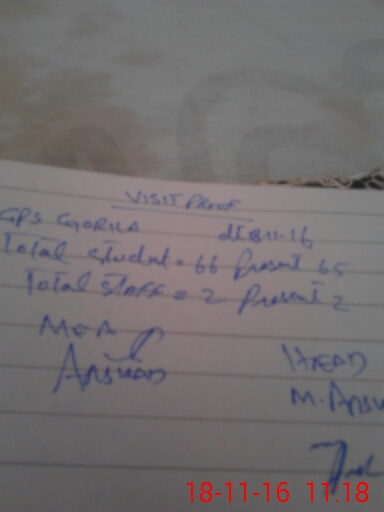 VISIT Proof
GPS GORILA dt 18-11-16
Total student = 66 Present 65
Total staff = 2 Present 2
MEA HEAD
Arshad M.
18-11-16 11:18